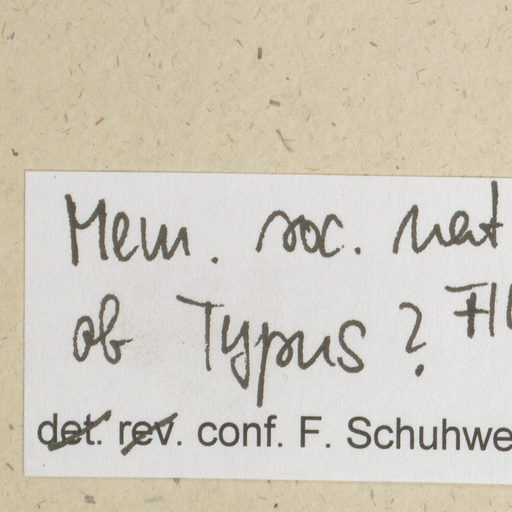 Mem. soc. nat
ob Typus?
det. rev. conf. F. Schuhwe